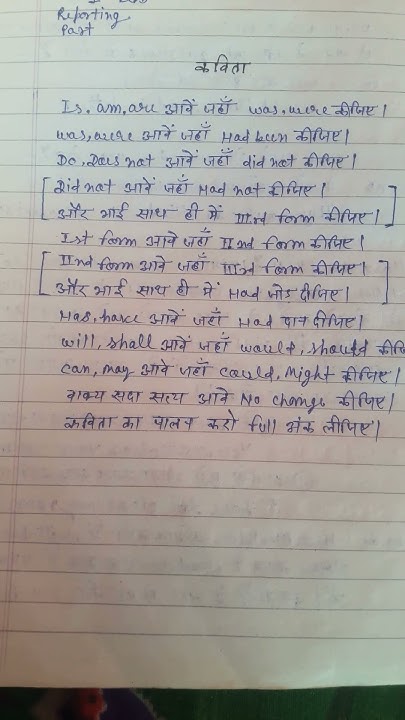 Reporting
Part
कविता
Is, am, are आवें जहाँ was, were कीजिए।
was, were आवें जहाँ Had been कीजिए।
Do, Does not आवें जहाँ did not कीजिए।
Did not आवें जहाँ Had not कीजिए।
और भाई साथ ही में IIIrd form कीजिए।
Ist form आवे जहाँ IInd form कीजिए।
IInd form आवे जहाँ IIIrd form कीजिए।
और भाई साथ ही में Had जोड़ दीजिए।
Has, have आवें जहाँ Had दीजिए।
will, shall आवें जहाँ would, should
can, may आवे जहाँ could, Might कीजिए।
वाक्य सदा सत्य आवे No change कीजिए।
कविता का पालन करो full अंक लीजिए।